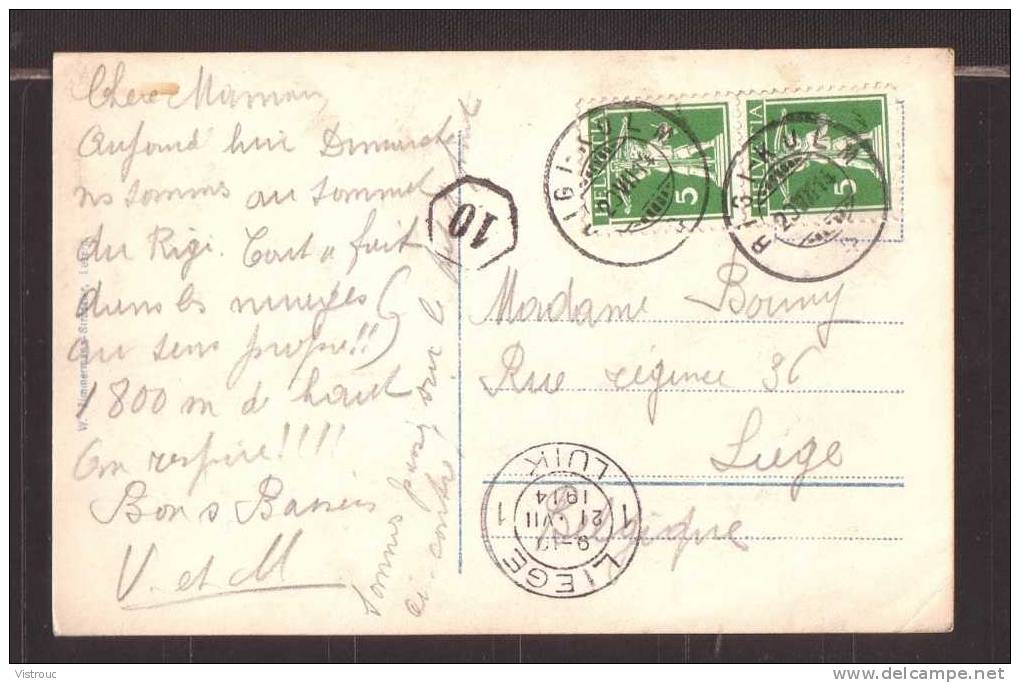 Chère Maman,
Aujourd'hui Dimanche
ns sommes au sommet
du Rigi. Tout à fait
dans les nuages
au sens propre!!
1800 m de haut
On respire!!!!
Bons Baisers
V. et M
sommes passés sur le
ci-contre
W. Zimmermann-Strässler,
10
HELVETIA
5
RIGI-KULM
20.VII.14
HELVETIA
5
RIGI-KULM
20.VII.14
Madame Bouny
Rue Régence 36
Liège
Belgique
LIEGE 1 LUIK 1
9-10
21 VII
1914
Vistrouc
www.delcampe.net